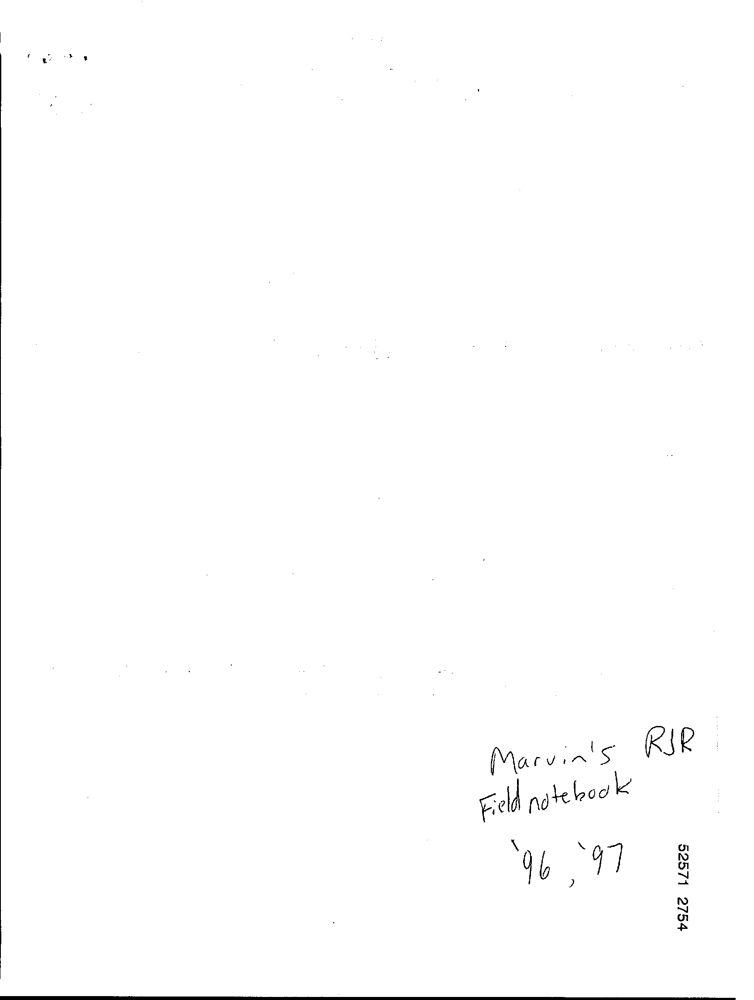 Marvin's RJR
Field notebook
'96, '97
52571 2754